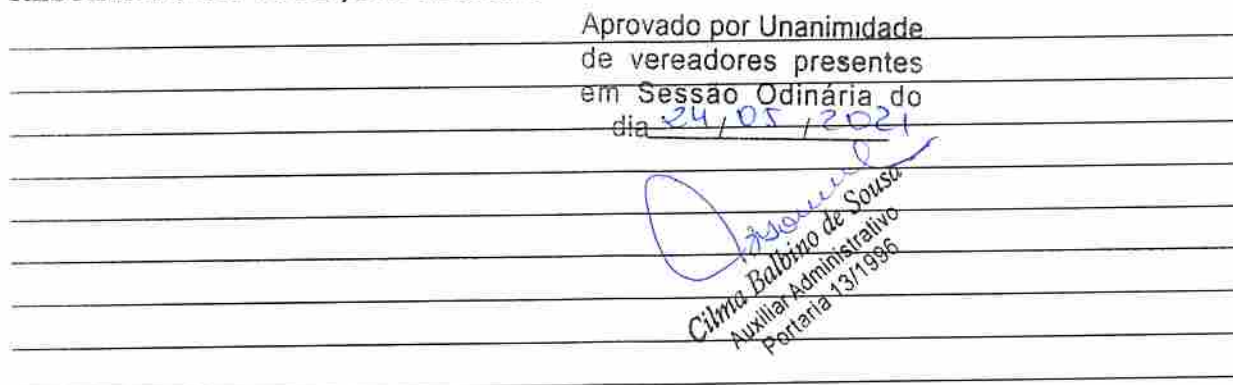 Aprovado por Unanimidade
de vereadores presentes
em Sessão Odinária do
dia 24 / 05 / 2021
Cilma Balbino de Sousa
Auxiliar Administrativo
Portaria 13/1996